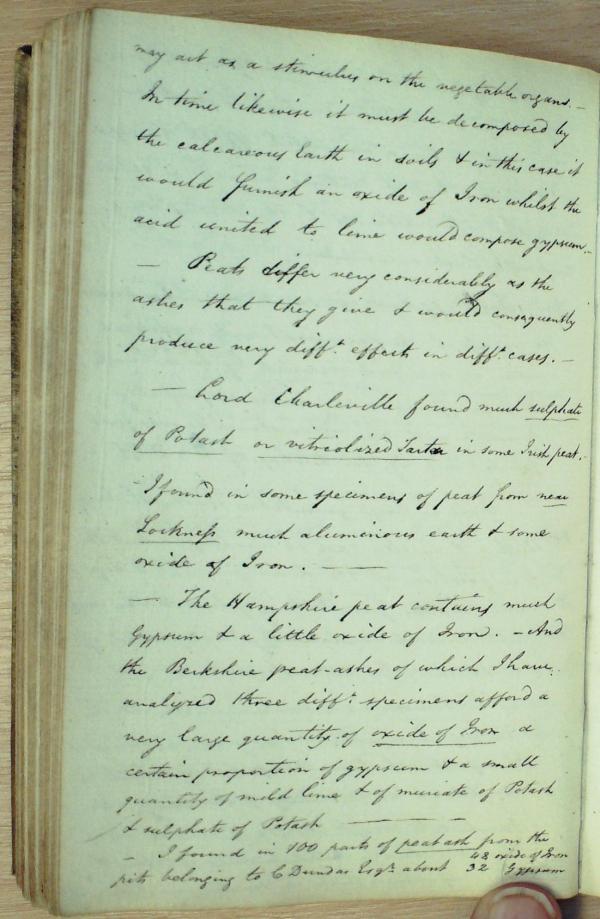 may act as a stimulus on the vegetable organs. –
In time likewise it must be decomposed by
the calcareous Earth in soils & in this case it
would furnish an oxide of Iron whilst the
acid united to lime would compose gypsum. –
— Peats differ very considerably as the
ashes that they give & would consequently
produce very diff.t effects in diff.t cases. –
— Lord Charleville found much sulphate
of Potash or vitriolized Tartar in some Irish peat. –
I found in some specimens of peat from near
Lockness much aluminous earth & some
oxide of Iron. —
— The Hampshire peat contains much
Gypsum & a little oxide of Iron. – And
the Berkshire peat-ashes of which I have
analyzed three diff.t specimens afford a
very large quantity of oxide of Iron a
certain proportion of gypsum & a small
quantity of mild lime & of muriate of Potash
& sulphate of Potash —
– I found in 100 parts of peat ash from the
pits belonging to C Dundas Esq.r about 48 oxide of Iron
32 Gypsum